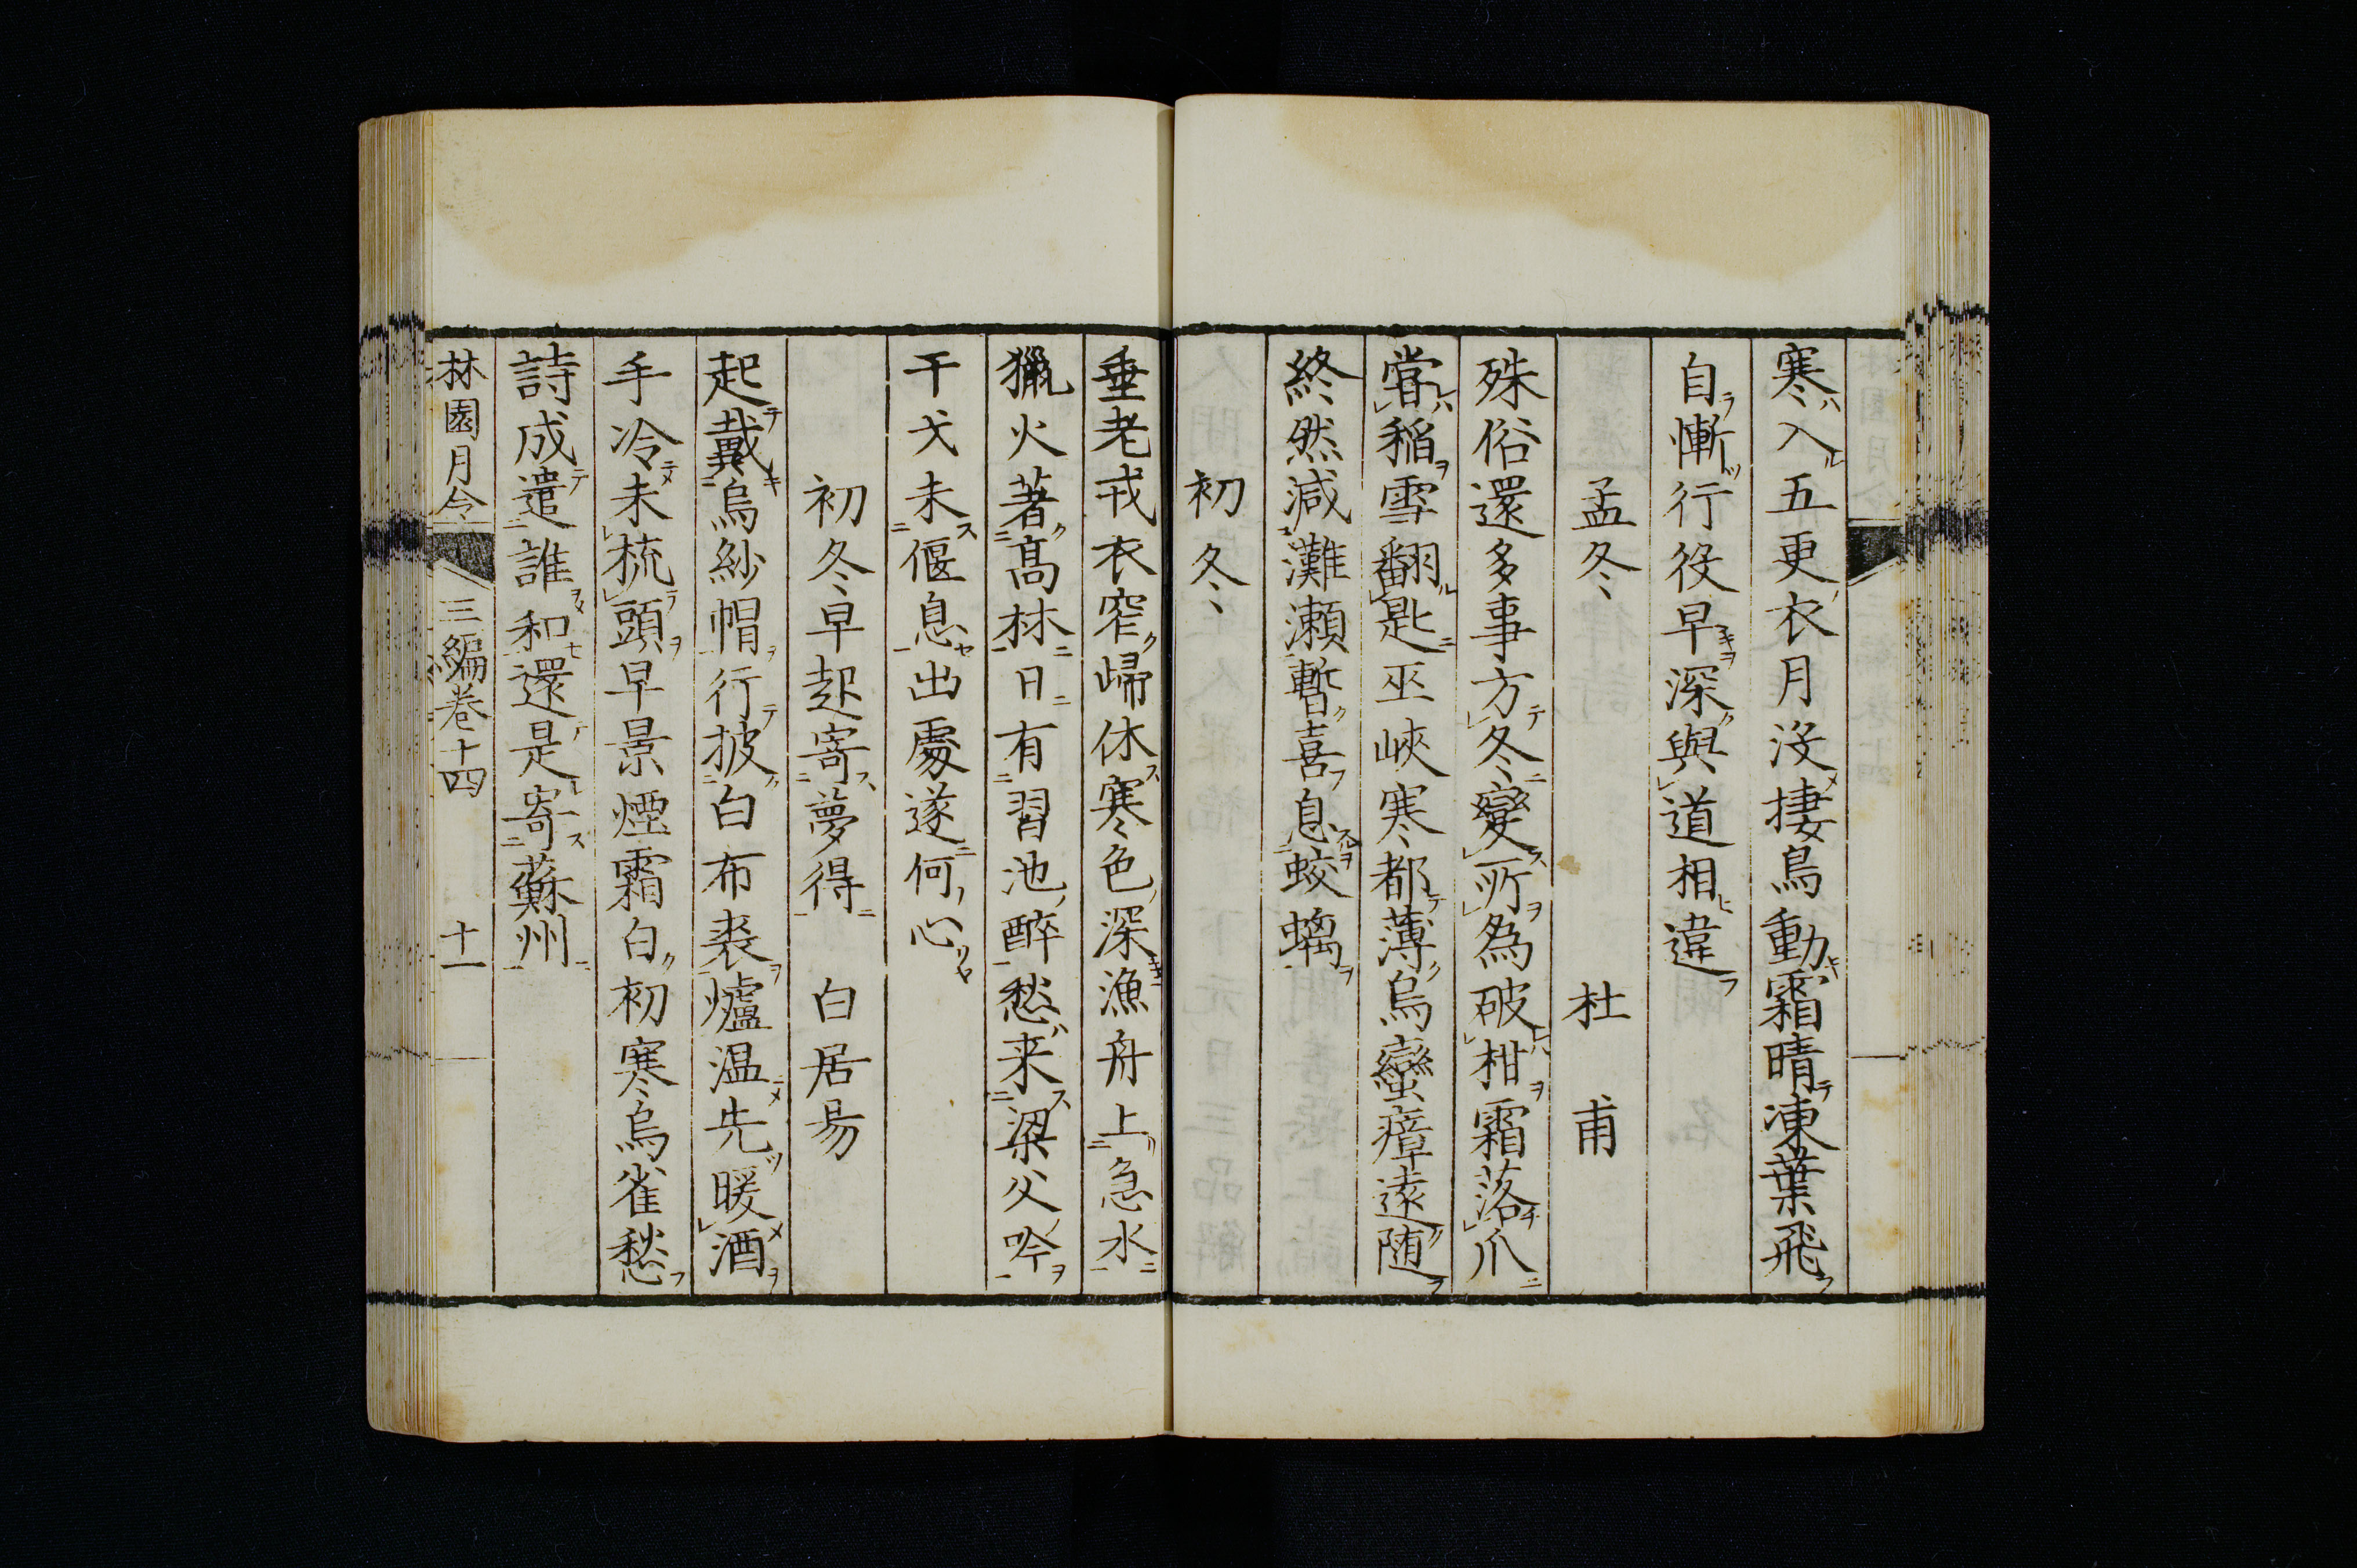 寒入五更衣月沒捿鳥動霜晴凍葉飛
自慚行役早深與道相違
孟冬　杜甫
殊俗還多事方冬變所為破柑霜落爪
嘗稲雪翻匙巫峽寒都薄烏蠻瘴遠随
終然減灘瀬暫喜息蛟螭
初冬
垂老戎衣窄歸休寒色深漁舟上急水
獵火著髙林日有習池醉愁来梁父吟
干戈未偃息出處遂何心
初冬早起寄夢得　白居昜
起戴烏紗帽行披白布裘爐温先暖酒
手冷未梳頭早景煙霜白初寒烏雀愁
詩成遣誰和還是寄蘇州
林園月令　三編巻十四　十一